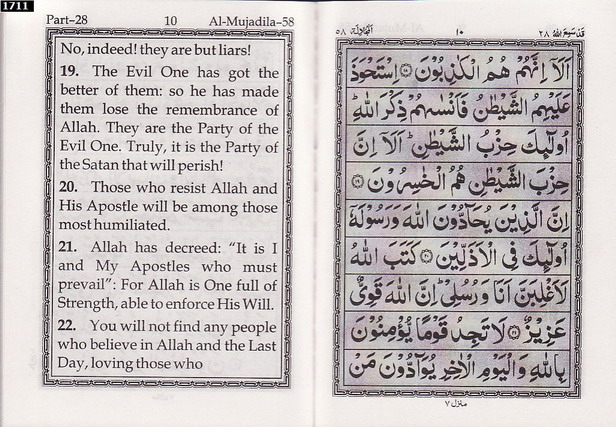 1711
Part-28 10 Al-Mujadila-58
No, indeed! they are but liars!
19. The Evil One has got the
better of them: so he has made
them lose the remembrance of
Allah. They are the Party of the
Evil One. Truly, it is the Party of
the Satan that will perish!
20. Those who resist Allah and
His Apostle will be among those
most humiliated.
21. Allah has decreed: “It is I
and My Apostles who must
prevail”: For Allah is One full of
Strength, able to enforce His Will.
22. You will not find any people
who believe in Allah and the Last
Day, loving those who
قد سمع الله ٢٨ ١٠ المجادلة ٥٨
اَلَاۤ اِنَّهُمْ هُمُ الْكٰذِبُوْنَ ۝١٨ اِسْتَحْوَذَ
عَلَيْهِمُ الشَّيْطٰنُ فَاَنْسٰىهُمْ ذِكْرَ اللّٰهِ ؕ
اُولٰٓئِكَ حِزْبُ الشَّيْطٰنِ ؕ اَلَاۤ اِنَّ
حِزْبَ الشَّيْطٰنِ هُمُ الْخٰسِرُوْنَ ۝١٩
اِنَّ الَّذِيْنَ يُحَآدُّوْنَ اللّٰهَ وَرَسُوْلَهٗۤ
اُولٰٓئِكَ فِى الْاَذَلِّيْنَ ۝٢٠ كَتَبَ اللّٰهُ
لَاَغْلِبَنَّ اَنَا وَرُسُلِىْ ؕ اِنَّ اللّٰهَ قَوِىٌّ
عَزِيْزٌ ۝٢١ لَا تَجِدُ قَوْمًا يُّؤْمِنُوْنَ
بِاللّٰهِ وَالْيَوْمِ الْاٰخِرِ يُوَآدُّوْنَ مَنْ
منزل ٧